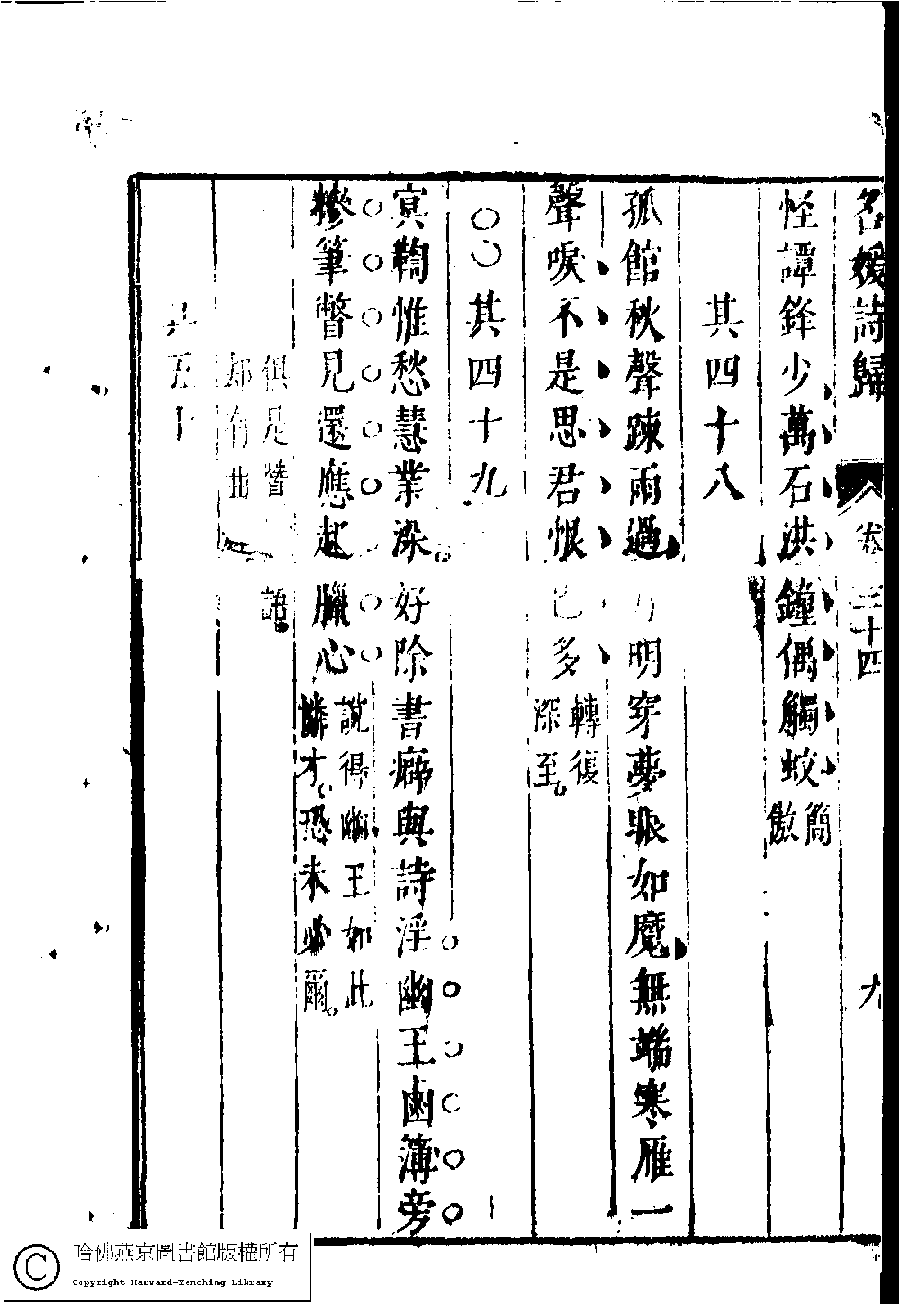 名媛詩歸 卷三十四 九
怪譚鋒少萬石洪鐘偶觸蚊 簡傲
其四十八
孤館秋聲踈雨過 明穿夢眼如魔無端寒雁一
聲唳不是思君恨已多 轉復深至
〇〇其四十九
冥鞫惟愁慧業深好除書癖與詩淫幽王鹵薄旁
携筆瞥見還應起臘心 說得幽王如此憐才恐未必爾
俱是 語
却有
其五十
哈佛燕京圖書館版權所有
Copyright Harvard-Yenching Library